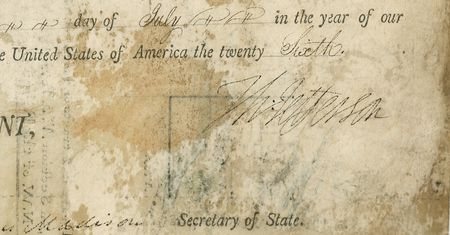 day of July in the year of our
e United States of America the twenty Sixth.
Th: Jefferson
NT,
s Madison Secretary of State.